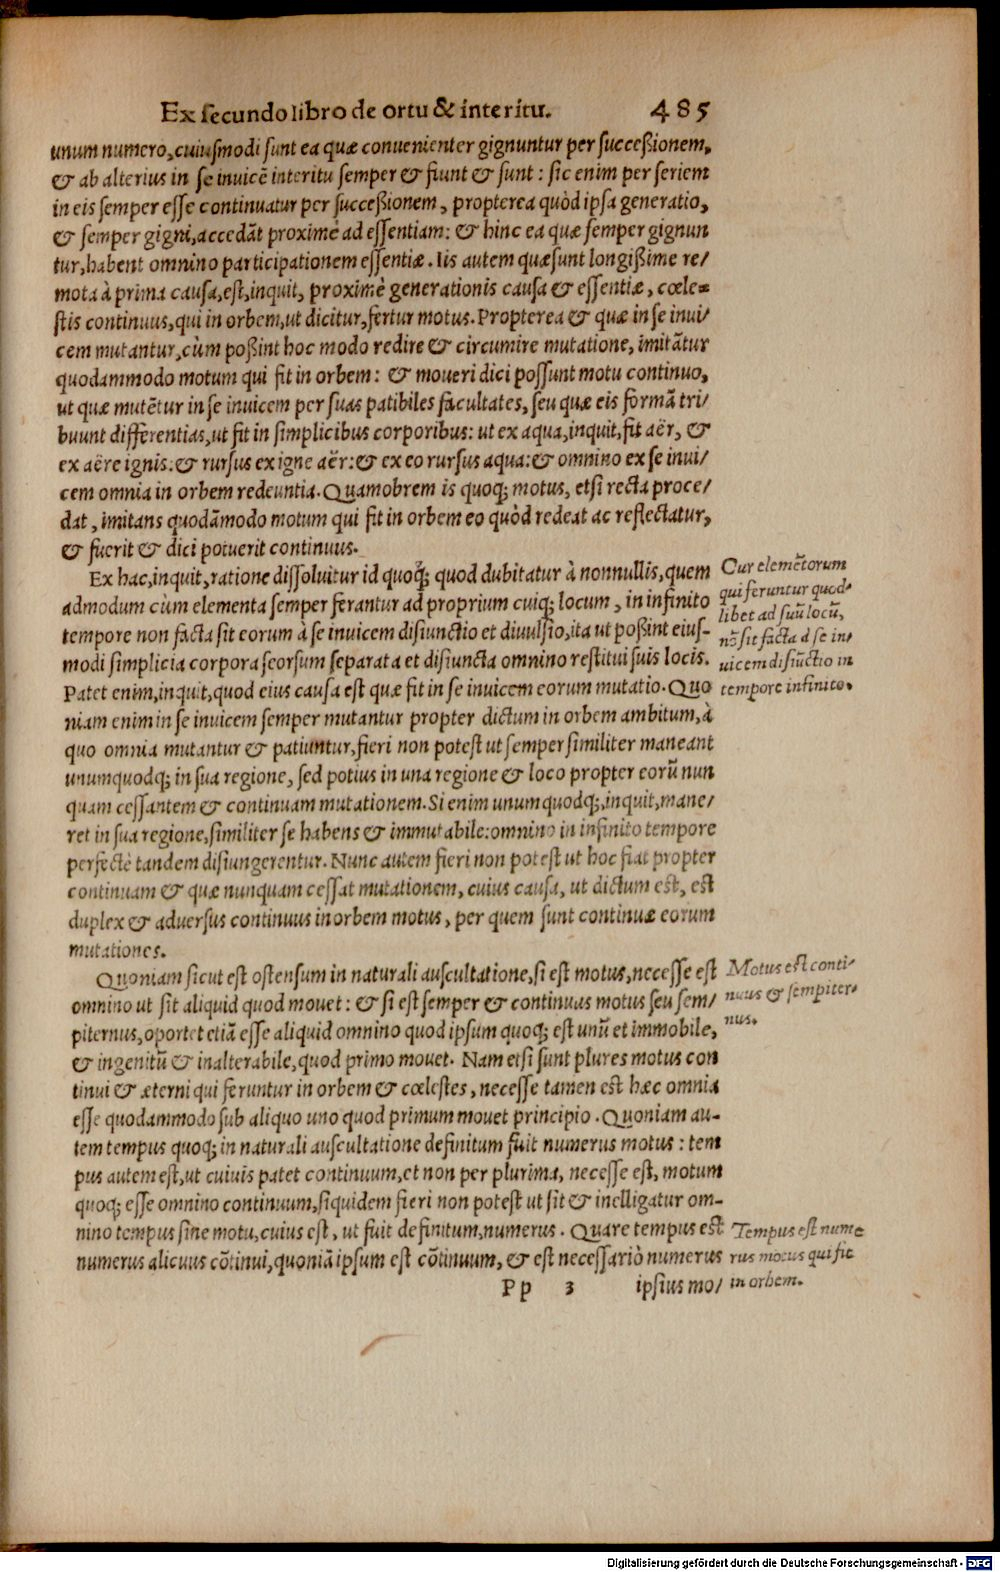 Ex secundo libro de ortu & interitu. 485
unum numero, cuiusmodi sunt ea quæ convenienter gignuntur per successionem,
& ab alterius in se invicē interitu semper & fiunt & sunt: sic enim per seriem
in eis semper esse continuatur per successionem, propterea quòd ipsa generatio,
& semper gigni, accedāt proximè ad essentiam: & hinc ea quæ semper gignun
tur, habent omnino participationem essentiæ. Iis autem quæ sunt longissime re/
mota à prima causa, est, inquit, proximè generationis causa & essentiæ, cœle=
stis continuus, qui in orbem, ut dicitur, fertur motus. Propterea & quæ in se invi/
cem mutantur, cùm possint hoc modo redire & circumire mutatione, imitātur
quodammodo motum qui fit in orbem: & moveri dici possunt motu continuo,
ut quæ mutētur in se invicem per suas patibiles facultates, seu quæ eis formā tri/
buunt differentias, ut fit in simplicibus corporibus: ut ex aqua, inquit, fit aër, &
ex aëre ignis: & rursus ex igne aër: & ex eo rursus aqua: & omnino ex se invi/
cem omnia in orbem redeuntia. Quamobrem is quoq; motus, etsi recta proce/
dat, imitans quodāmodo motum qui fit in orbem eo quòd redeat ac reflectatur,
& fuerit & dici potuerit continuus.
Ex hac, inquit, ratione dissoluitur id quoq; quod dubitatur à nonnullis, quem
admodum cùm elementa semper ferantur ad proprium cuiq; locum, in infinito
tempore non facta sit eorum à se invicem disiunctio et divulsio, ita ut possint eius-
modi simplicia corpora seorsum separata et disiuncta omnino restitui suis locis.
Patet enim, inquit, quod eius causa est quæ fit in se invicem eorum mutatio. Quo
niam enim in se invicem semper mutantur propter dictum in orbem ambitum, à
quo omnia mutantur & patiuntur, fieri non potest ut semper similiter maneant
unumquodq; in sua regione, sed potius in una regione & loco propter eorū nun
quam cessantem & continuam mutationem. Si enim unumquodq;, inquit, mane/
ret in sua regione, similiter se habens & immutabile: omnino in infinito tempore
perfectè tandem disiungerentur. Nunc autem fieri non potest ut hoc fiat propter
continuam & quæ nunquam cessat mutationem, cuius causa, ut dictum est, est
duplex & adversus continuus in orbem motus, per quem sunt continuæ eorum
mutationes.
Cur elemētorum
qui feruntur quod-
libet ad suū locū,
nō sit facta à se in/
vicem disiūctio in
tempore infinito.
Quoniam sicut est ostensum in naturali auscultatione, si est motus, necesse est
omnino ut sit aliquid quod movet: & si est semper & continuus motus seu sem/
piternus, oportet etiā esse aliquid omnino quod ipsum quoq; est unū et immobile,
& ingenitū & inalterabile, quod primo movet. Nam etsi sunt plures motus con
tinui & æterni qui feruntur in orbem & cœlestes, necesse tamen est hæc omnia
esse quodammodo sub aliquo uno quod primum movet principio. Quoniam au-
tem tempus quoq; in naturali auscultatione definitum fuit numerus motus: tem
pus autem est, ut cuivis patet continuum, et non per plurima, necesse est, motum
quoq; esse omnino continuum, siquidem fieri non potest ut sit & inelligatur om-
nino tempus sine motu, cuius est, ut fuit definitum, numerus. Quare tempus est
numerus alicuus cōtinui, quoniā ipsum est cōtinuum, & est necessariò numerus
Motus est conti-
nuus & sempiter-
nus.
Tempus est nume
rus motus qui fit
in orbem.
Pp 3 ipsius mo/
Digitalisierung gefördert durch die Deutsche Forschungsgemeinschaft - DFG